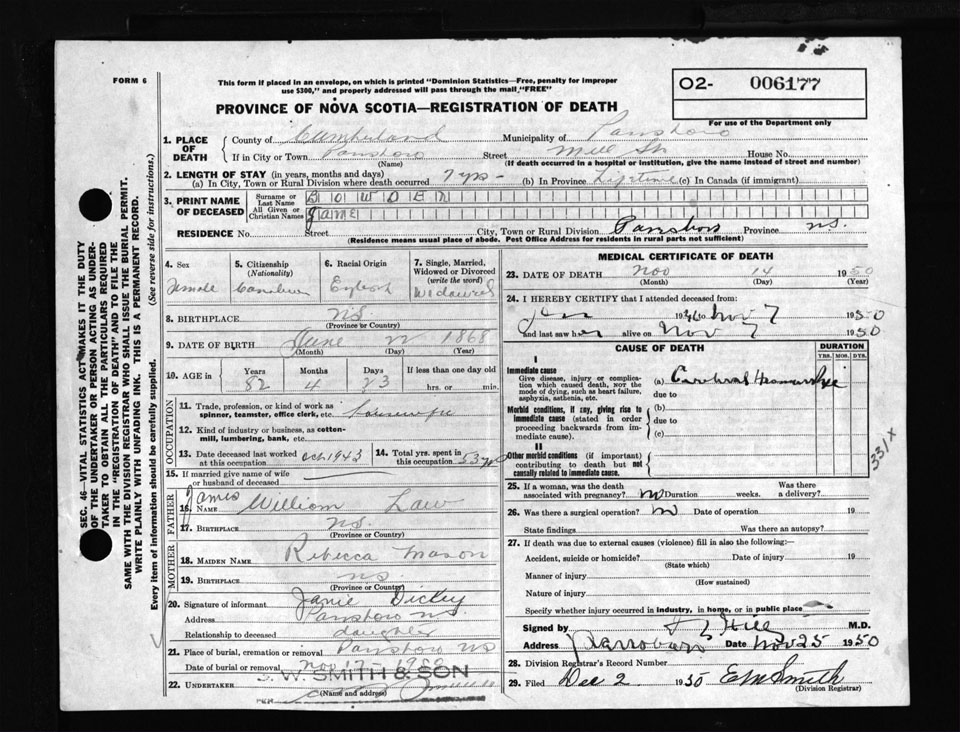 FORM 6
This form if placed in an envelope, on which is printed "Dominion Statistics—Free, penalty for improper
use $300," and properly addressed will pass through the mail "FREE"
O2- 006177
For use of the Department only
PROVINCE OF NOVA SCOTIA—REGISTRATION OF DEATH
1. PLACE OF DEATH County of Cumberland Municipality of Parrsboro
If in City or Town Parrsboro (Name) Street Mill St. House No.
(If death occurred in a hospital or institution, give the name instead of street and number)
2. LENGTH OF STAY (in years, months and days)
(a) In City, Town or Rural Division where death occurred 7 yrs - (b) In Province Lifetime (c) In Canada (if immigrant)
3. PRINT NAME OF DECEASED Surname or Last Name BOWDEN
All Given or Christian Names Jane
RESIDENCE No. Street City, Town or Rural Division Parrsboro Province N.S.
(Residence means usual place of abode. Post Office Address for residents in rural parts not sufficient)
4. Sex Female
5. Citizenship (Nationality) Canadian
6. Racial Origin English
7. Single, Married, Widowed or Divorced (write the word) Widowed
8. BIRTHPLACE N.S.
(Province or Country)
9. DATE OF BIRTH June 22 1868
(Month) (Day) (Year)
10. AGE in Years 82 Months 4 Days 23 If less than one day old hrs. or min.
OCCUPATION
11. Trade, profession, or kind of work as spinner, teamster, office clerk, etc. housewife
12. Kind of industry or business, as cotton-mill, lumbering, bank, etc.
13. Date deceased last worked at this occupation Oct 1943
14. Total yrs. spent in this occupation 53 yrs
15. If married give name of wife or husband of deceased
FATHER
16. NAME James William Law
17. BIRTHPLACE N.S.
(Province or Country)
MOTHER
18. MAIDEN NAME Rebecca Mason
19. BIRTHPLACE N.S.
(Province or Country)
20. Signature of informant Janie Dickey
Address Parrsboro N.S.
Relationship to deceased daughter
21. Place of burial, cremation or removal Parrsboro NS
Date of burial or removal Nov 17
22. UNDERTAKER S. W. SMITH & SON
(Name and address)
PER
MEDICAL CERTIFICATE OF DEATH
23. DATE OF DEATH Nov 14 1950
(Month) (Day) (Year)
24. I HEREBY CERTIFY that I attended deceased from:
Jan 1946 to Nov 7 1950
and last saw her alive on Nov 7 1950
CAUSE OF DEATH DURATION
YRS. MOS. DYS.
I
Immediate cause (a) Cerebral Hemorrhage
Give disease, injury or complication which caused death, NOT the mode of dying, such as heart failure, asphyxia, asthenia, etc.
due to
Morbid conditions, if any, giving rise to immediate cause (stated in order proceeding backwards from immediate cause).
(b)
due to
(c)
II
Other morbid conditions (if important) contributing to death but not causally related to immediate cause.
331X
25. If a woman, was the death associated with pregnancy? no Duration weeks. Was there a delivery?
26. Was there a surgical operation? no Date of operation 19
State findings Was there an autopsy?
27. If death was due to external causes (violence) fill in also the following:—
Accident, suicide or homicide? Date of injury 19
(State which)
Manner of injury
(How sustained)
Nature of injury
Specify whether injury occurred in industry, in home, or in public place
Signed by Hill M.D.
Address Parrsboro Date Nov 25 1950
28. Division Registrar's Record Number
29. Filed Dec 2 1950 E M Smith
(Division Registrar)
SEC. 46—VITAL STATISTICS ACT MAKES IT THE DUTY
OF THE UNDERTAKER OR PERSON ACTING AS UNDER-
TAKER TO OBTAIN ALL THE PARTICULARS REQUIRED
IN THE "REGISTRATION OF DEATH" AND TO FILE THE
SAME WITH THE DIVISION REGISTRAR WHO SHALL ISSUE THE BURIAL PERMIT.
WRITE PLAINLY WITH UNFADING INK. THIS IS A PERMANENT RECORD.
Every item of information should be carefully supplied. (See reverse side for instructions.)